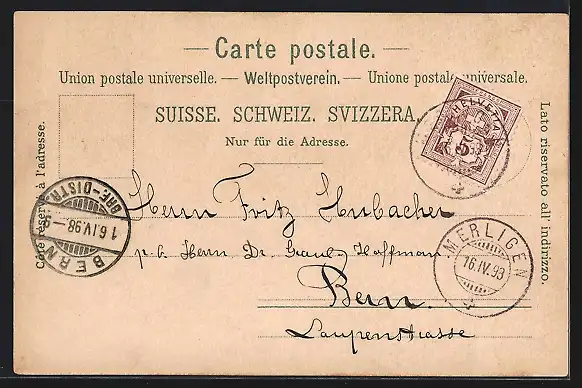 — Carte postale. —
Union postale universelle. — Weltpostverein. — Unione postale universale.
SUISSE. SCHWEIZ. SVIZZERA.
Nur für die Adresse.
Côté réservé à l'adresse.
Lato riservato all' indirizzo.
HELVETIA
5
BERN
16.IV.98
BRF-DISTR.
MERLIGEN
16.IV.98
Herrn Fritz Hubacher
p. h. Herrn Dr. Hoffmann
Bern.
Laupenstrasse